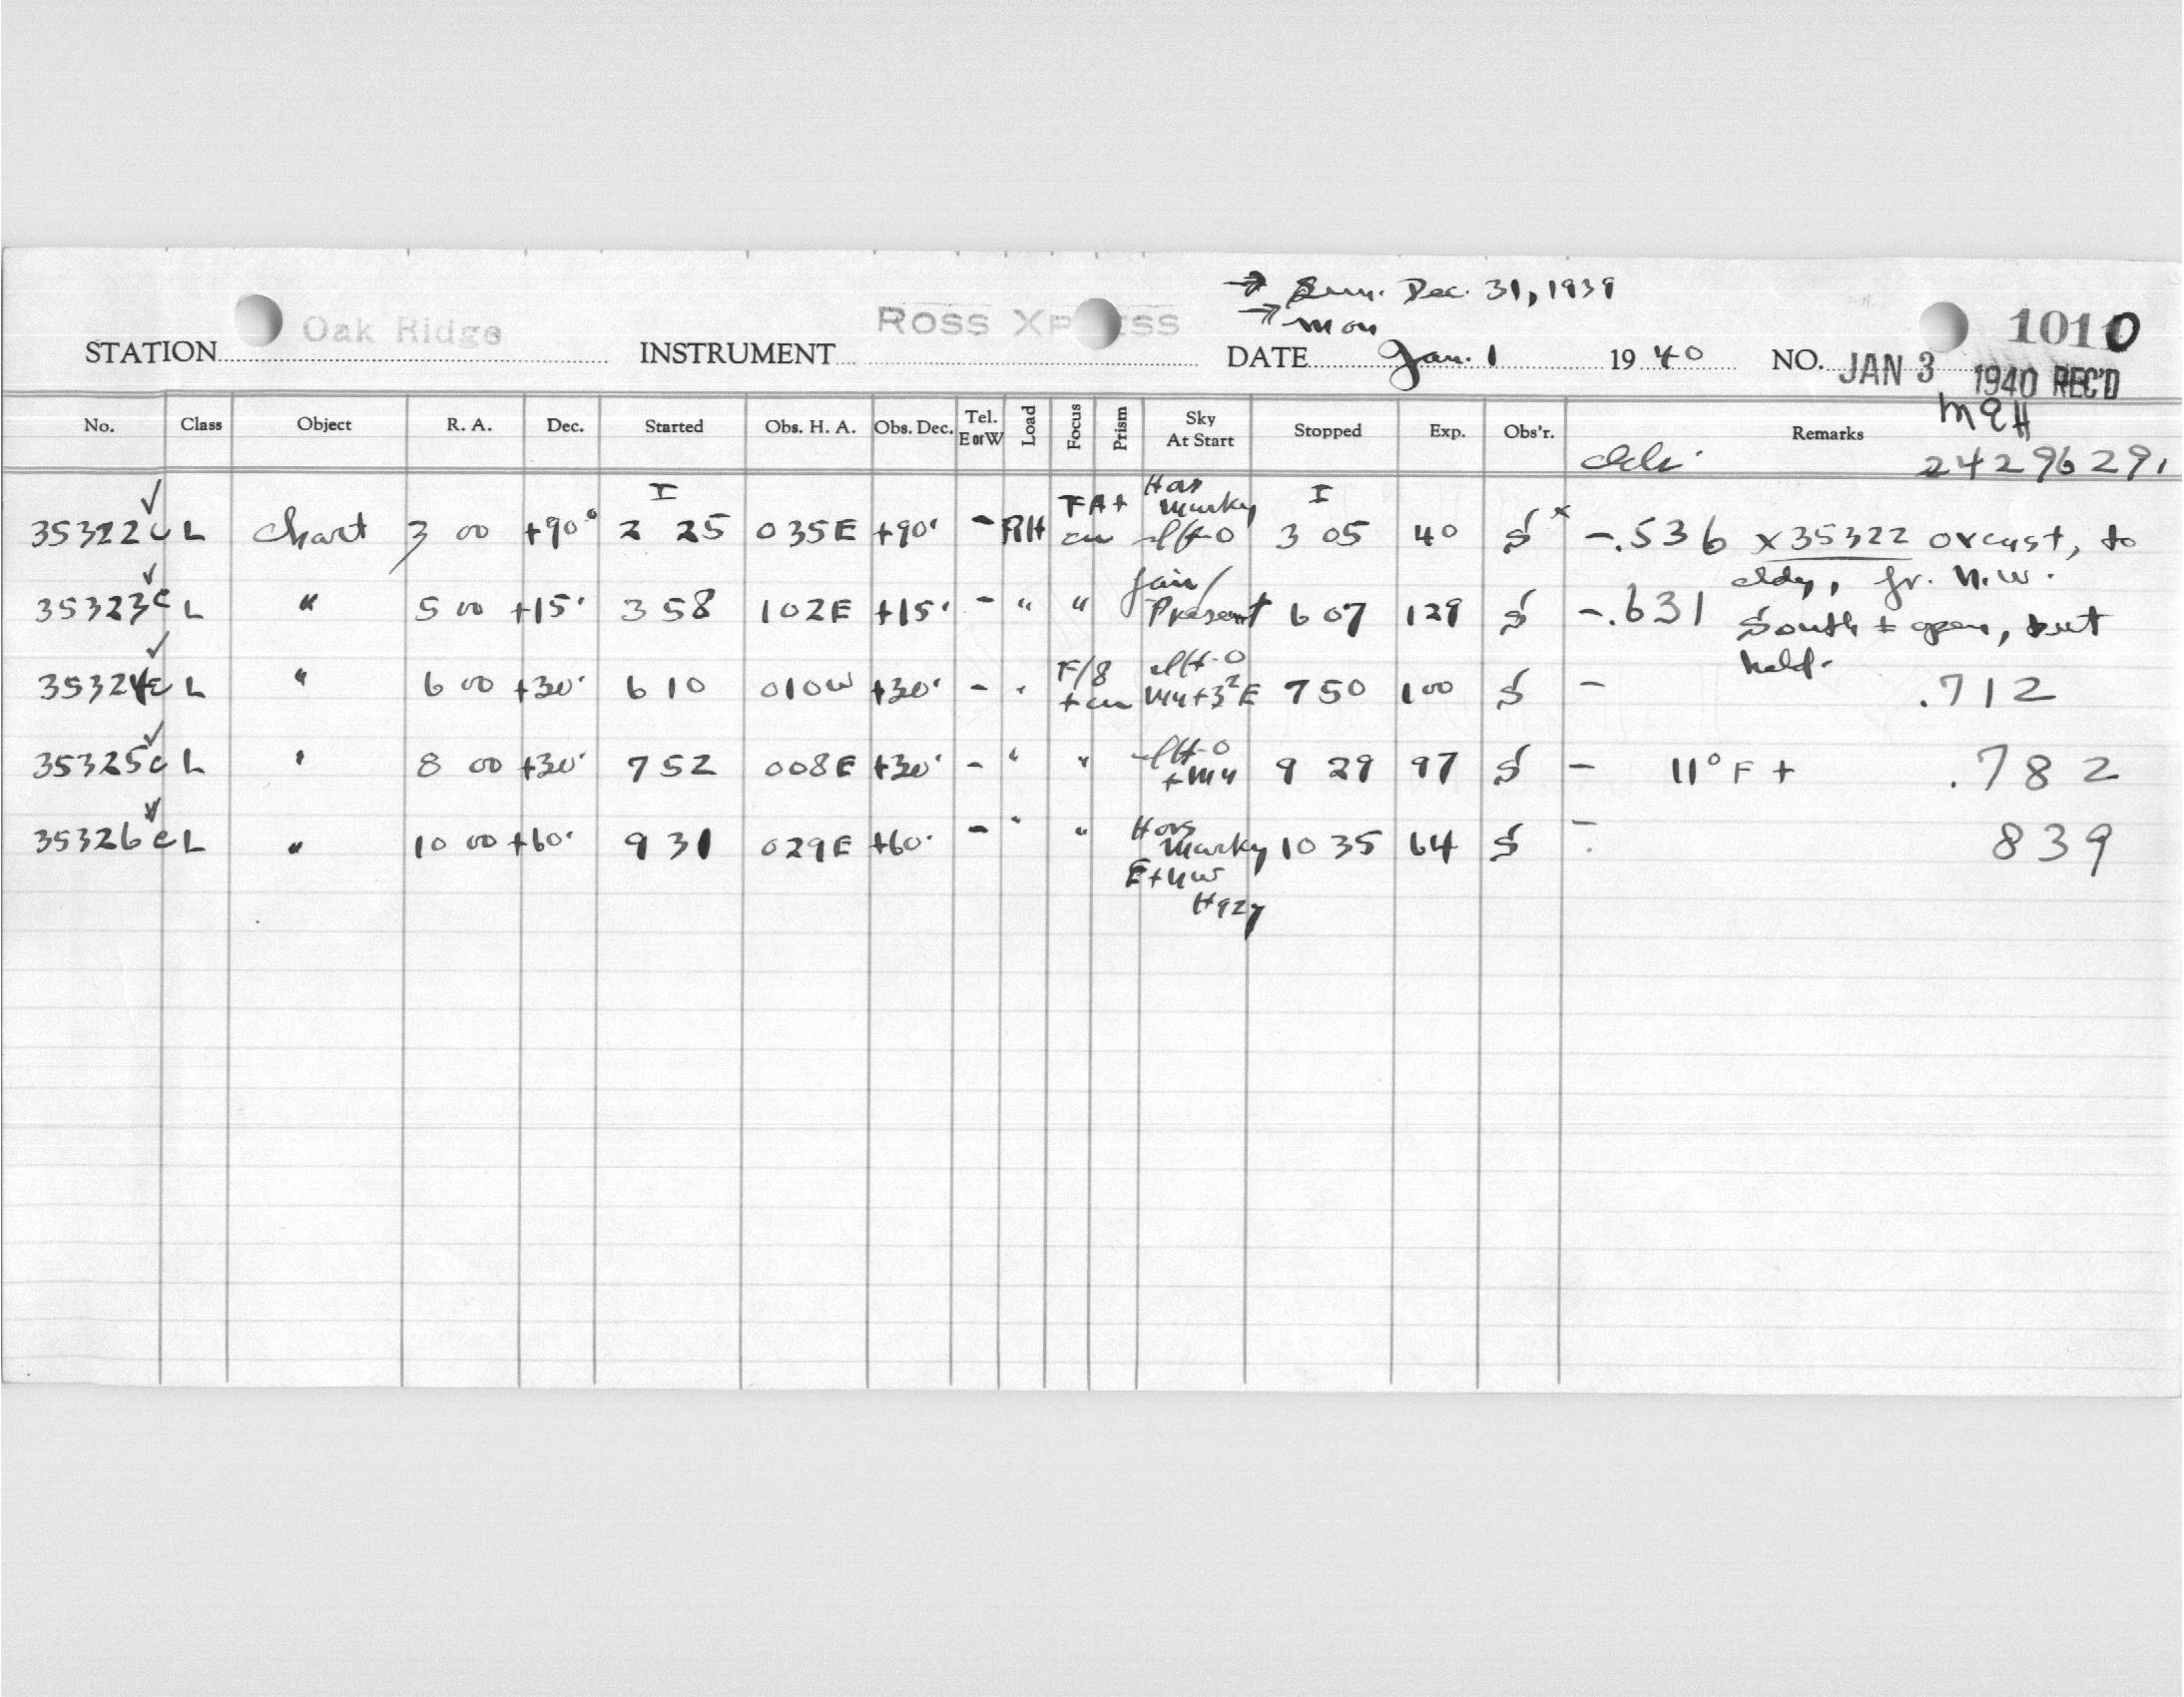 → Sun. Dec. 31, 1939
→ Mon
Oak Ridge
ROSS XP ESS
1010
STATION INSTRUMENT DATE Jan. 1 1940 NO. JAN 3 1940 REC'D
MQH
No. Class Object R. A. Dec. Started Obs. H. A. Obs. Dec. Tel. E or W Load Focus Prism Sky At Start Stopped Exp. Obs'r. Remarks
2429629.
I FA+ Hors Murky I
35322c L Chart 3 00 +90° 2 25 035E +90° - RH 3 05 40 S × -.536 ×35322 ovcast, to
cldy, fr. N.W.
fair/
35323c L " 5 00 +15° 3 58 102E +15° - " " Present 6 07 129 S -.631 South ± open, but
held.
F/8
35324c L " 6 00 +30° 6 10 010W +30° - " 7 50 100 S - .712
35325c L " 8 00 +30° 7 52 008E +30° - " " 9 29 97 S - 11°F + .782
35326c L " 10 00 +60° 9 31 029E +60° - " " Hors Murky 10 35 64 S - 839
E+NW
Hazy